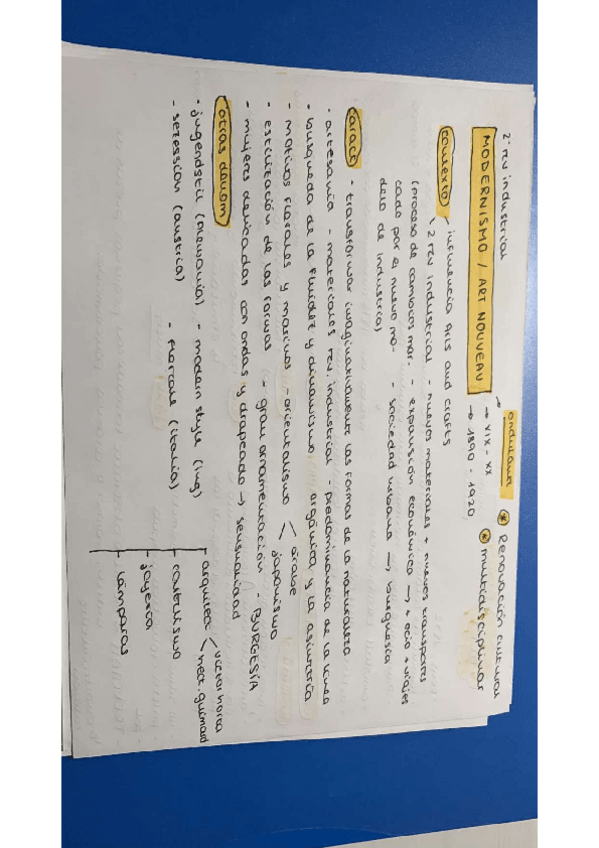 2ª rev industrial
MODERNISMO / ART NOUVEAU
→ ondulana
→ XIX - XX
→ 1890 - 1920
* Renovación cultural
* multidisciplinar
contexto
influencia Arts and crafts
2 rev industrial - nuevos materiales + nuevos transportes
(proceso de cambios mar- - expansión económica → + ocio + viajes
cado por el nuevo mo- - sociedad urbana → burguesía
delo de industria)
caract - transformar imaginativamente las formas de la naturaleza
- artesanía - materiales rev industrial - predominancia de la línea
- busqueda de la fluidez y dinamismo orgánica y la asimetría
- motivos florales y marinos - orientalismo < árabe
japonismo
- estilización de las formas - gran ornamentación - BURGESÍA
- mujeres derivadas con ondas y drapeado → sensualidad
otras denom
- jugendstil (Alemania) - modern style (ing)
- sezession (austria) - floreale (italia)
arquitect < victor horta
hect. guimard
cartelismo
joyería
lámparas